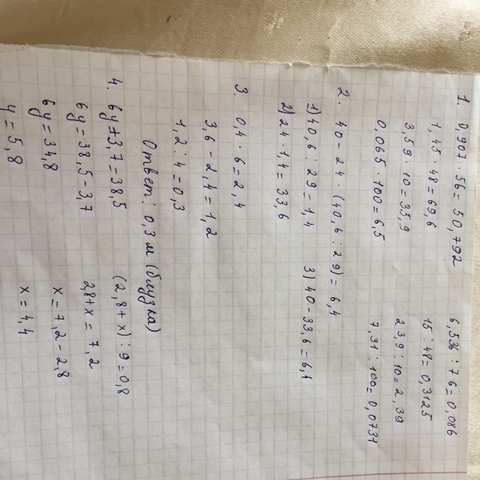 1. 0,907 · 56 = 50,792 6,536 : 76 = 0,086
1,45 · 48 = 69,6 15 : 48 = 0,3125
3,59 · 10 = 35,9 23,9 : 10 = 2,39
0,065 · 100 = 6,5 7,31 : 100 = 0,0731
2. 40 - 24 · (40,6 : 29) = 6,4
1) 40,6 : 29 = 1,4 3) 40 - 33,6 = 6,4
2) 24 · 1,4 = 33,6
3. 0,4 · 6 = 2,4
3,6 - 2,4 = 1,2
1,2 : 4 = 0,3
Ответ: 0,3 м (блузка)
4. 6y + 3,7 = 38,5 (2,8 + x) : 9 = 0,8
6y = 38,5 - 3,7 2,8 + x = 7,2
6y = 34,8 x = 7,2 - 2,8
y = 5,8 x = 4,4